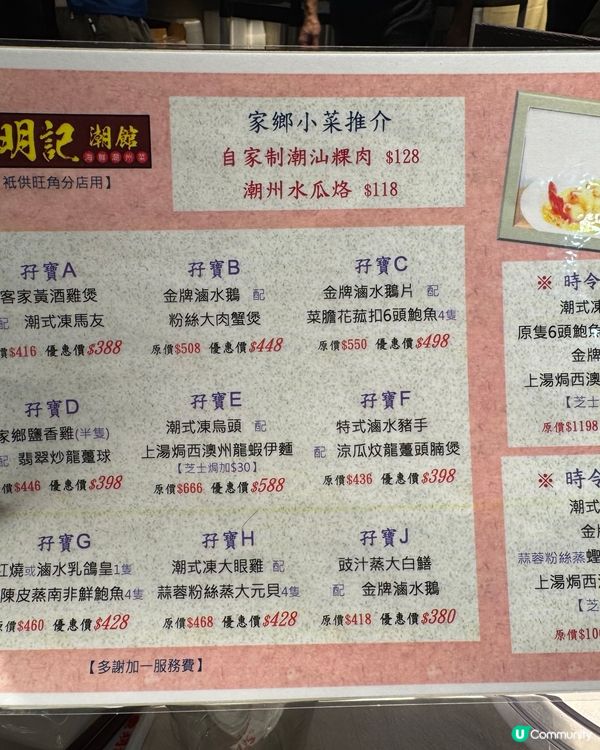 明記 潮館
海鮮潮州菜
祗供旺角分店用】
家鄉小菜推介
自家制潮汕粿肉 $128
潮州水瓜烙 $118
孖寶A
客家黃酒雞煲
配 潮式凍馬友
原價$416 優惠價$388
孖寶B
金牌滷水鵝 配
粉絲大肉蟹煲
原價$508 優惠價$448
孖寶C
金牌滷水鵝片 配
菜膽花菰扣6頭鮑魚4隻
原價$550 優惠價$498
孖寶D
家鄉鹽香雞(半隻)
配 翡翠炒龍躉球
價$446 優惠價$398
孖寶E
潮式凍烏頭 配
上湯焗西澳州龍蝦伊麵
【芝士焗加$30】
原價$666 優惠價$588
孖寶F
特式滷水豬手
配 涼瓜炆龍躉頭腩煲
原價$436 優惠價$398
孖寶G
紅燒或滷水乳鴿皇1隻
陳皮蒸南非鮮鮑魚4隻
原價$460 優惠價$428
孖寶H
潮式凍大眼雞 配
蒜蓉粉絲蒸大元貝4隻
原價$468 優惠價$428
孖寶J
豉汁蒸大白鱔
配 金牌滷水鵝
原價$418 優惠價$380
【多謝加一服務費】
※ 時令
潮式凍
原隻6頭鮑魚
金牌
上湯焗西澳
【芝士
原價$1198
※ 時令
潮式
金牌
蒜蓉粉絲蒸
上湯焗西
【芝
原價$10
U Community